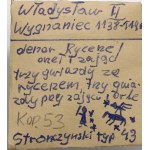 Władysław II
Wygnaniec 1138-1146
denar Rycerz/
orzeł i zając
trzy gwiazdy za
rycerzem, trzy gwia-
zdy pod zającu i orle
Kop 53
Stronczyński typ 43